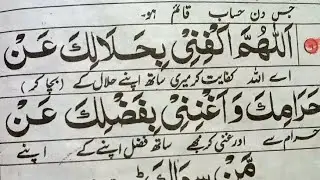 جس دن حساب قائم ہو۔
اَللّٰهُمَّ اكْفِنِيْ بِحَلَالِكَ عَنْ
اے اللہ کفایت کر میری ساتھ اپنے حلال کے (بچا کر)
حَرَامِكَ وَاَغْنِنِيْ بِفَضْلِكَ عَنْ
حرام سے اور غنی کر مجھے ساتھ فضل اپنے کے اپنے
مَّنْ سِوَاكَ